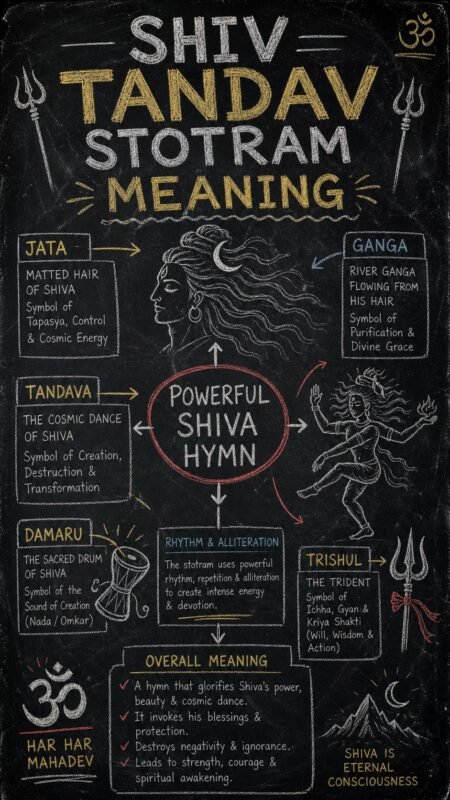 ॐ
SHIV
TANDAV
STOTRAM
MEANING
JATA
MATTED HAIR
OF SHIVA
Symbol of
Tapasya, Control
& Cosmic Energy
GANGA
RIVER GANGA
FLOWING FROM
HIS HAIR
Symbol of
Purification &
Divine Grace
TANDAVA
THE COSMIC DANCE
OF SHIVA
Symbol of Creation,
Destruction &
Transformation
POWERFUL
SHIVA
HYMN
DAMARU
THE SACRED DRUM
OF SHIVA
Symbol of the
Sound of Creation
(Nada / Omkar)
RHYTHM & ALLITERATION
The stotram uses powerful
rhythm, repetition & alliteration
to create intense energy
& devotion.
TRISHUL
THE TRIDENT
Symbol of
Ichha, Gyan &
Kriya Shakti
(Will, Wisdom &
Action)
OVERALL MEANING
A hymn that glorifies Shiva's power,
beauty & cosmic dance.
It invokes his blessings &
protection.
Destroys negativity & ignorance.
Leads to strength, courage &
spiritual awakening.
ॐ
HAR HAR
MAHADEV
SHIVA IS
ETERNAL
CONSCIOUSNESS